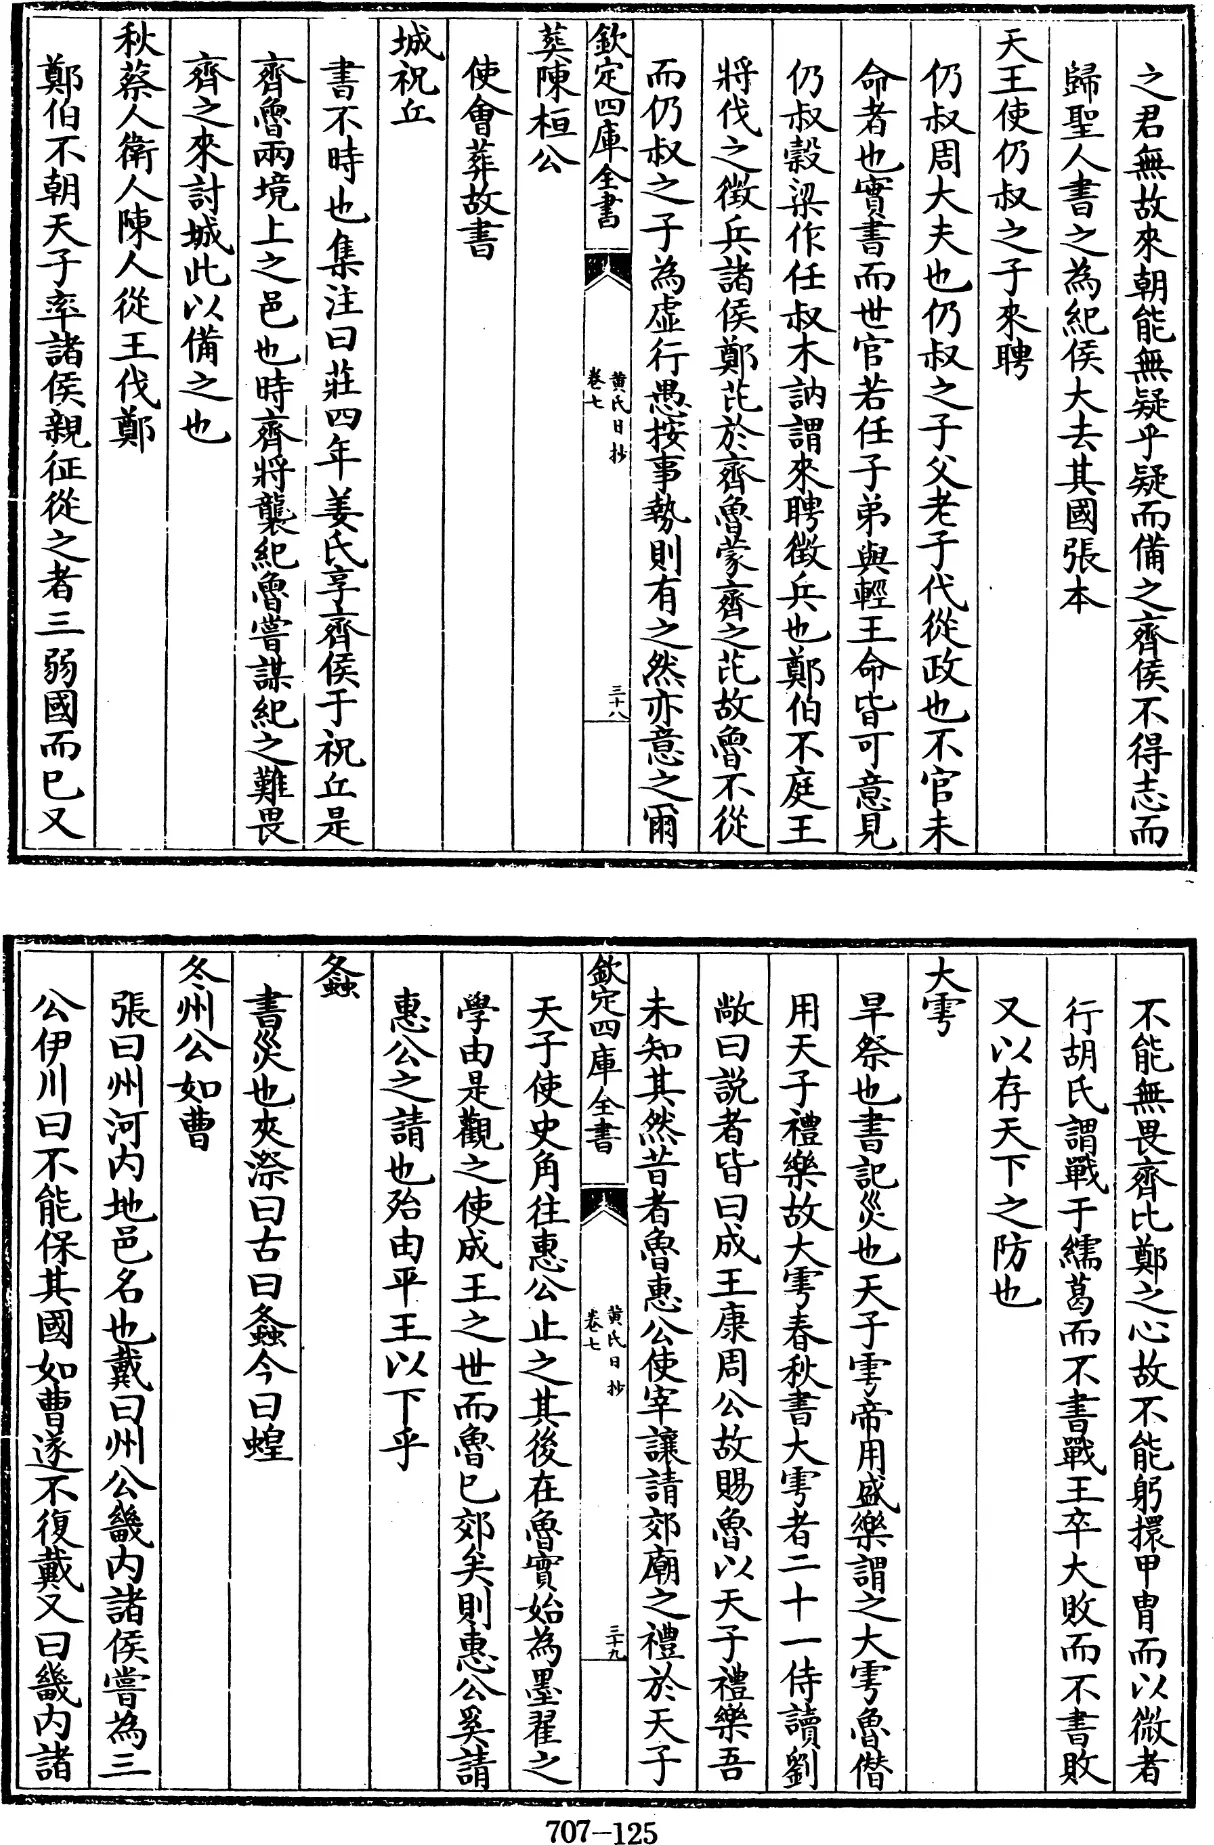 之君無故來朝能無疑乎疑而備之齊侯不得志而
歸聖人書之為紀侯大去其國張本
天王使仍叔之子來聘
仍叔周大夫也仍叔之子父老子代從政也不官未
命者也實書而世官若任子弟與輕王命皆可意見
仍叔穀梁作任叔木訥謂來聘徵兵也鄭伯不庭王
將伐之徵兵諸侯鄭芘於齊魯蒙齊之芘故魯不從
而仍叔之子為虛行愚按事勢則有之然亦意之爾
欽定四庫全書
黃氏日抄
卷七
三十八
葬陳桓公
使會葬故書
城祝丘
書不時也集注曰莊四年姜氏享齊侯于祝丘是
齊魯兩境上之邑也時齊將襲紀魯嘗謀紀之難畏
齊之來討城此以備之也
秋蔡人衛人陳人從王伐鄭
鄭伯不朝天子率諸侯親征從之者三弱國而已又
不能無畏齊比鄭之心故不能躬擐甲冑而以微者
行胡氏謂戰于繻葛而不書戰王卒大敗而不書敗
又以存天下之防也
大雩
旱祭也書記災也天子雩帝用盛樂謂之大雩魯僣
用天子禮樂故大雩春秋書大雩者二十一侍讀劉
敞曰説者皆曰成王康周公故賜魯以天子禮樂吾
未知其然昔者魯惠公使宰讓請郊廟之禮於天子
欽定四庫全書
黃氏日抄
卷七
三十九
天子使史角往惠公止之其後在魯實始為墨翟之
學由是觀之使成王之世而魯已郊矣則惠公奚請
惠公之請也殆由平王以下乎
螽
書災也夾漈曰古曰螽今曰蝗
冬州公如曹
張曰州河内地邑名也戴曰州公畿内諸侯嘗為三
公伊川曰不能保其國如曹遂不復戴又曰畿内諸
707-125